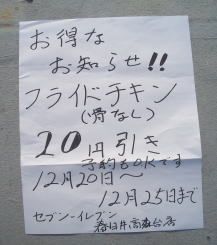 お得な
お知らせ!!
フライドチキン
(骨なし)
20円引き
予約もOKです
12月20日~
12月25日まで
セブン-イレブン
春日井高森台店